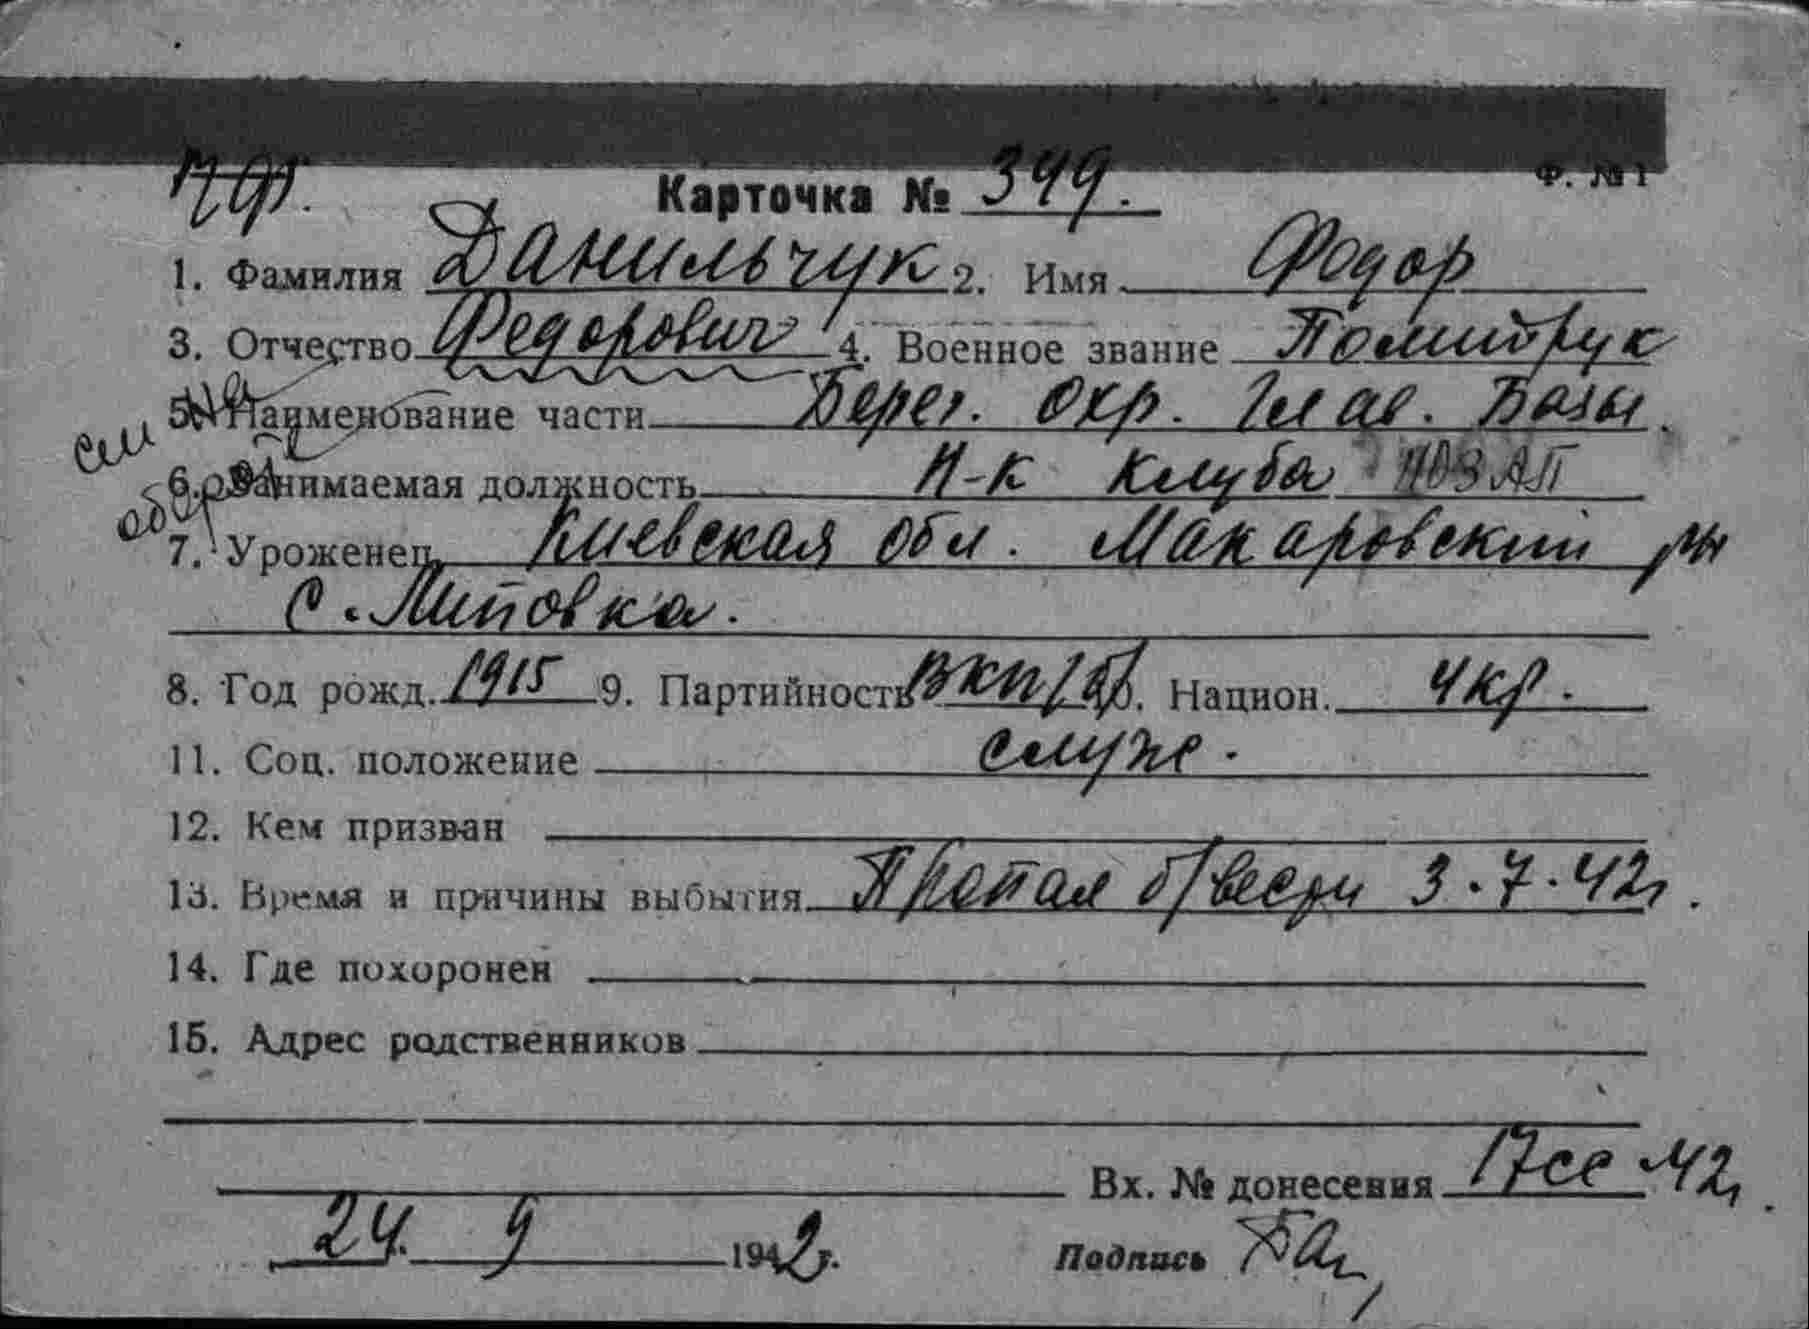 Ф. № 1
Карточка № 349.
1. Фамилия Данильчук 2. Имя Федор
3. Отчество Федорович 4. Военное звание Политрук
5. Наименование части Берег. Охр. Глав. Базы.
см на обороте
6. Занимаемая должность Н-к клуба
7. Уроженец Киевская обл. Макаровский р-н
с. Липовка.
8. Год рожд. 1915 9. Партийность ВКП/б/ 10. Национ. Укр.
11. Соц. положение служ.
12. Кем призван
13. Время и причины выбытия Пропал б/вести 3.7.42г.
14. Где похоронен
15. Адрес родственников
Вх. № донесения 17сс-42г.
24. 9 1942г. Подпись